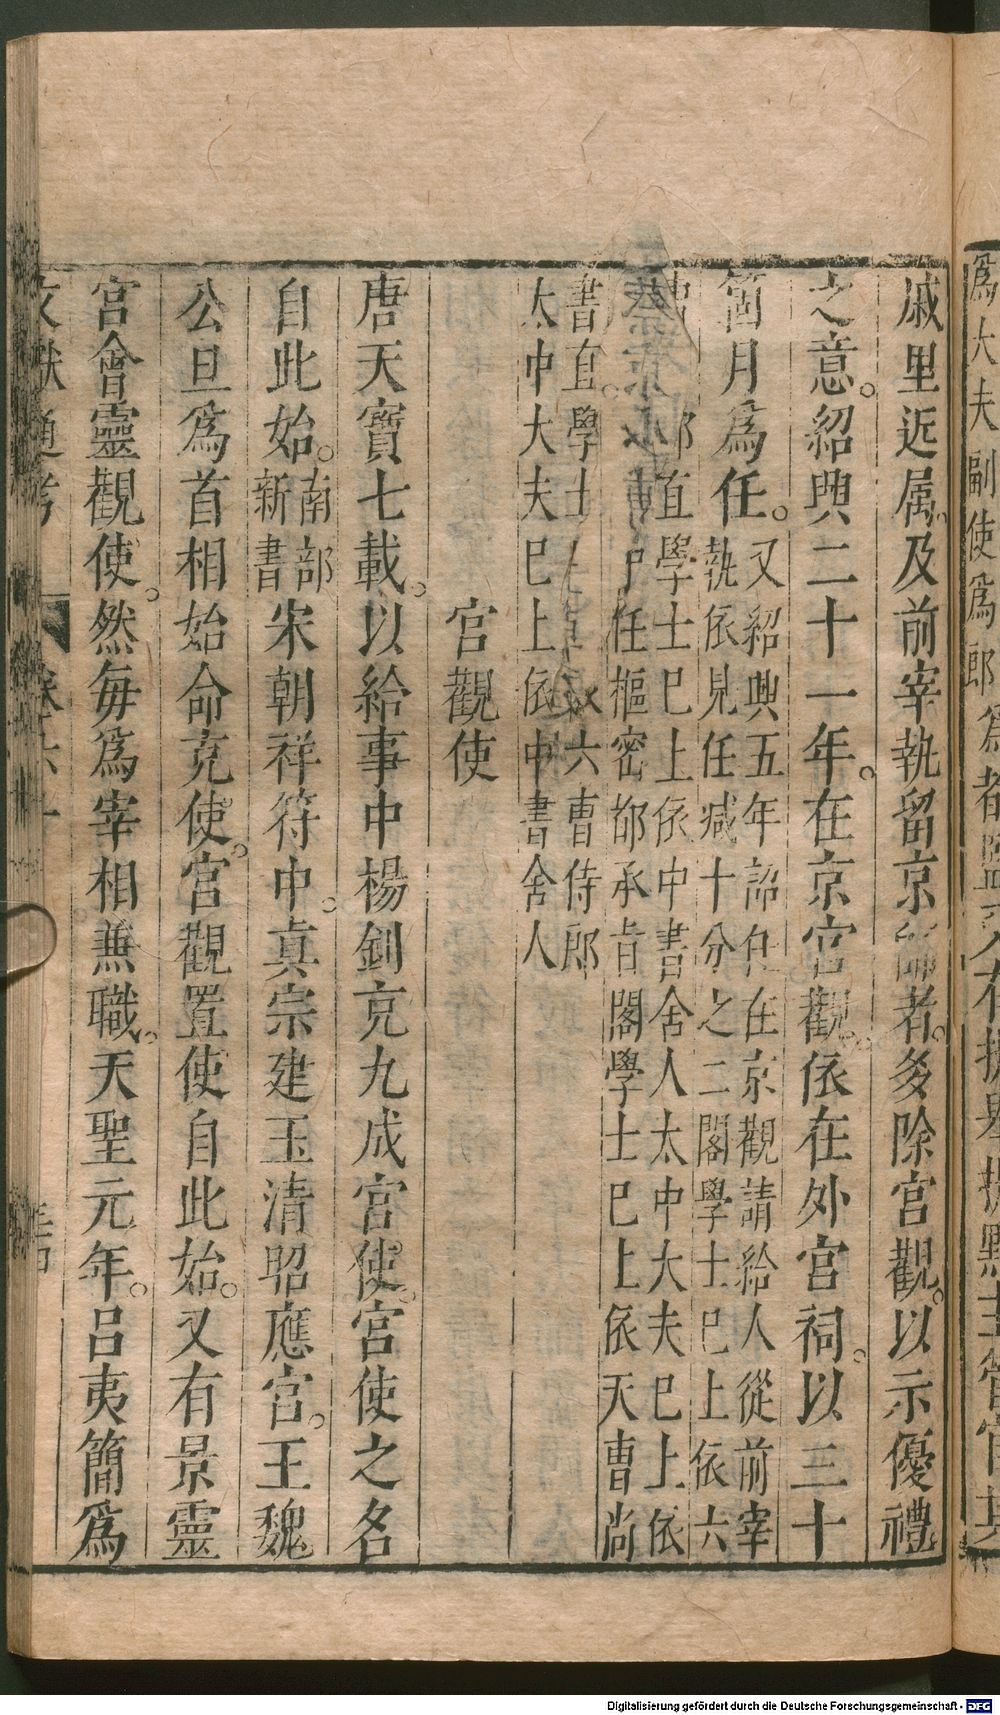 爲大夫副使爲郎
戚里近属及前宰執留京師者多除宮觀以示優禮
之意紹興二十一年在京宮觀依在外宮祠以三十
箇月爲任又紹興五年詔任在京觀請給人從前宰
執依見任减十分之二閣學士巳上依六
郎直學士巳上依中書舍人太中大夫巳上依
任樞密都承旨閣學士巳上依天曹尚
書直學士 六曹侍郎
太中大夫巳上依中書舍人
宮觀使
唐天寶七載以給事中楊釗充九成宮使宮使之名
自此始南部
新書宋朝祥符中眞宗建玉清昭應宮王魏
公旦爲首相始命充使宮觀置使自此始又有景靈
宮會靈觀使然每爲宰相兼職天聖元年呂夷簡爲
文獻通考 卷六十
Digitalisierung gefördert durch die Deutsche Forschungsgemeinschaft - DFG